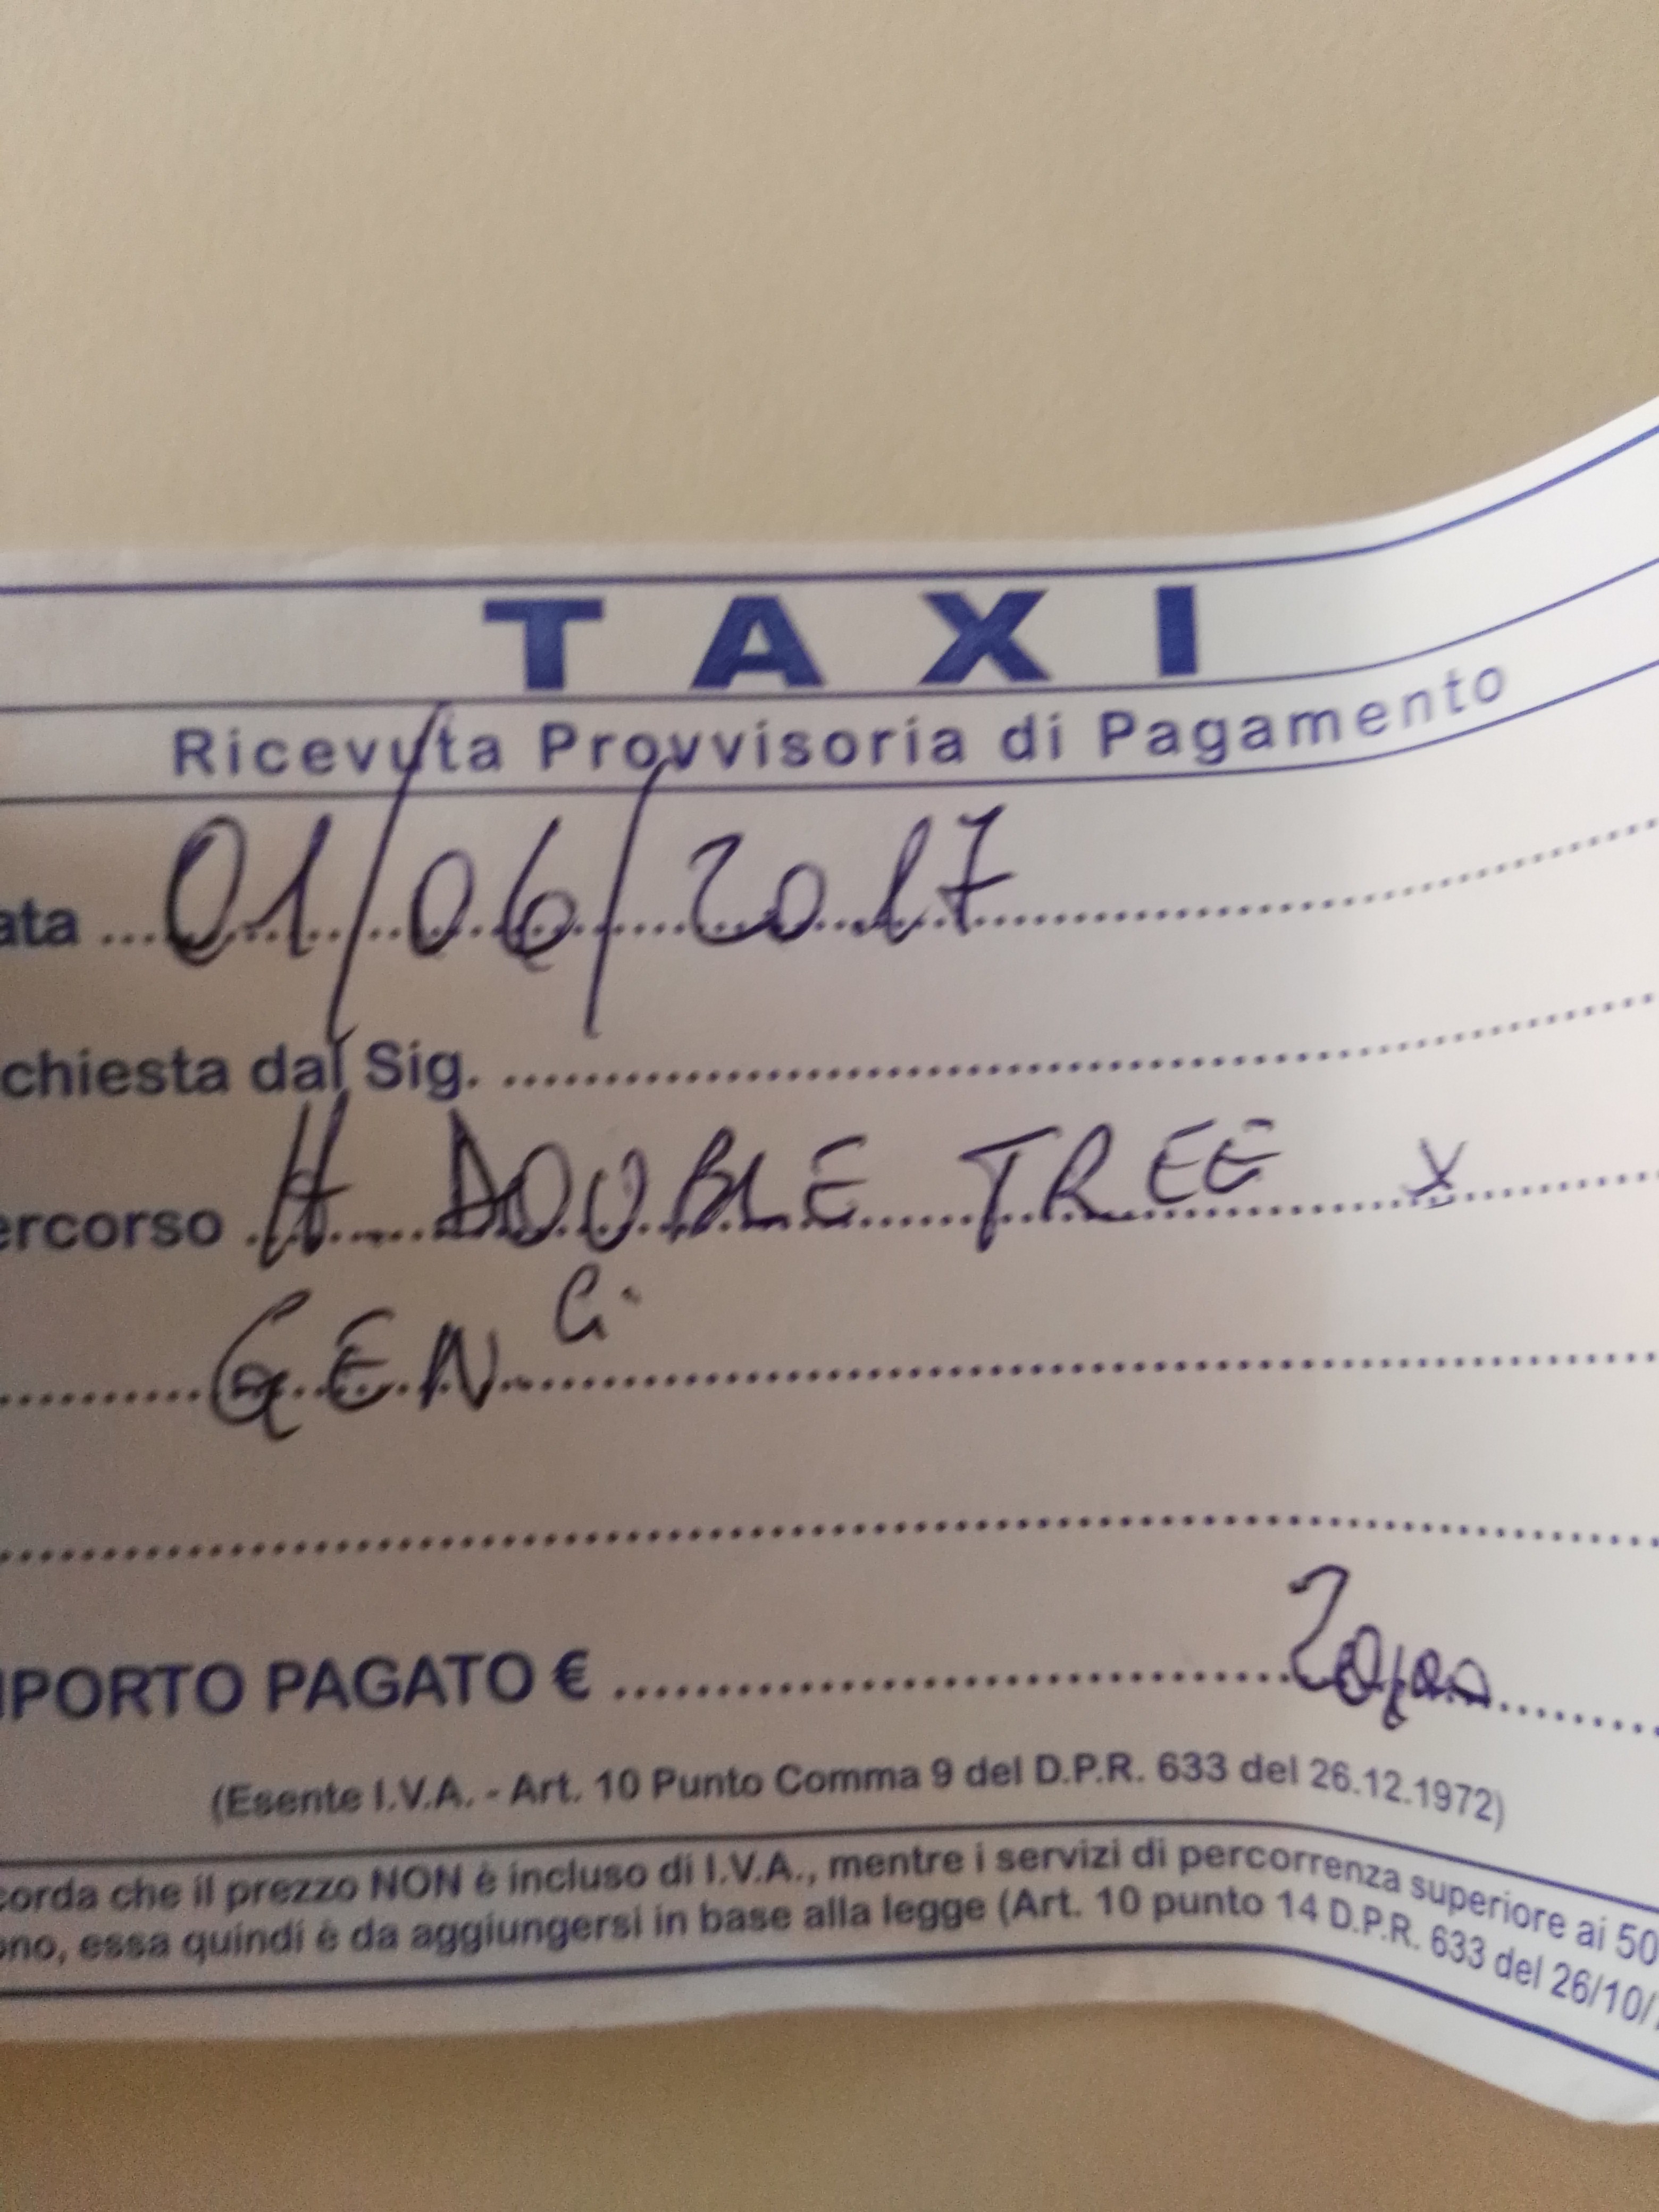 TAXI
Ricevuta Provvisoria di Pagamento
ata 01/06/2017
chiesta dal Sig.
ercorso H DOUBLE TREE X
GEN
MPORTO PAGATO € 20,00
(Esente I.V.A. - Art. 10 Punto Comma 9 del D.P.R. 633 del 26.12.1972)
corda che il prezzo NON è incluso di I.V.A., mentre i servizi di percorrenza superiore ai 50
ono, essa quindi è da aggiungersi in base alla legge (Art. 10 punto 14 D.P.R. 633 del 26/10/